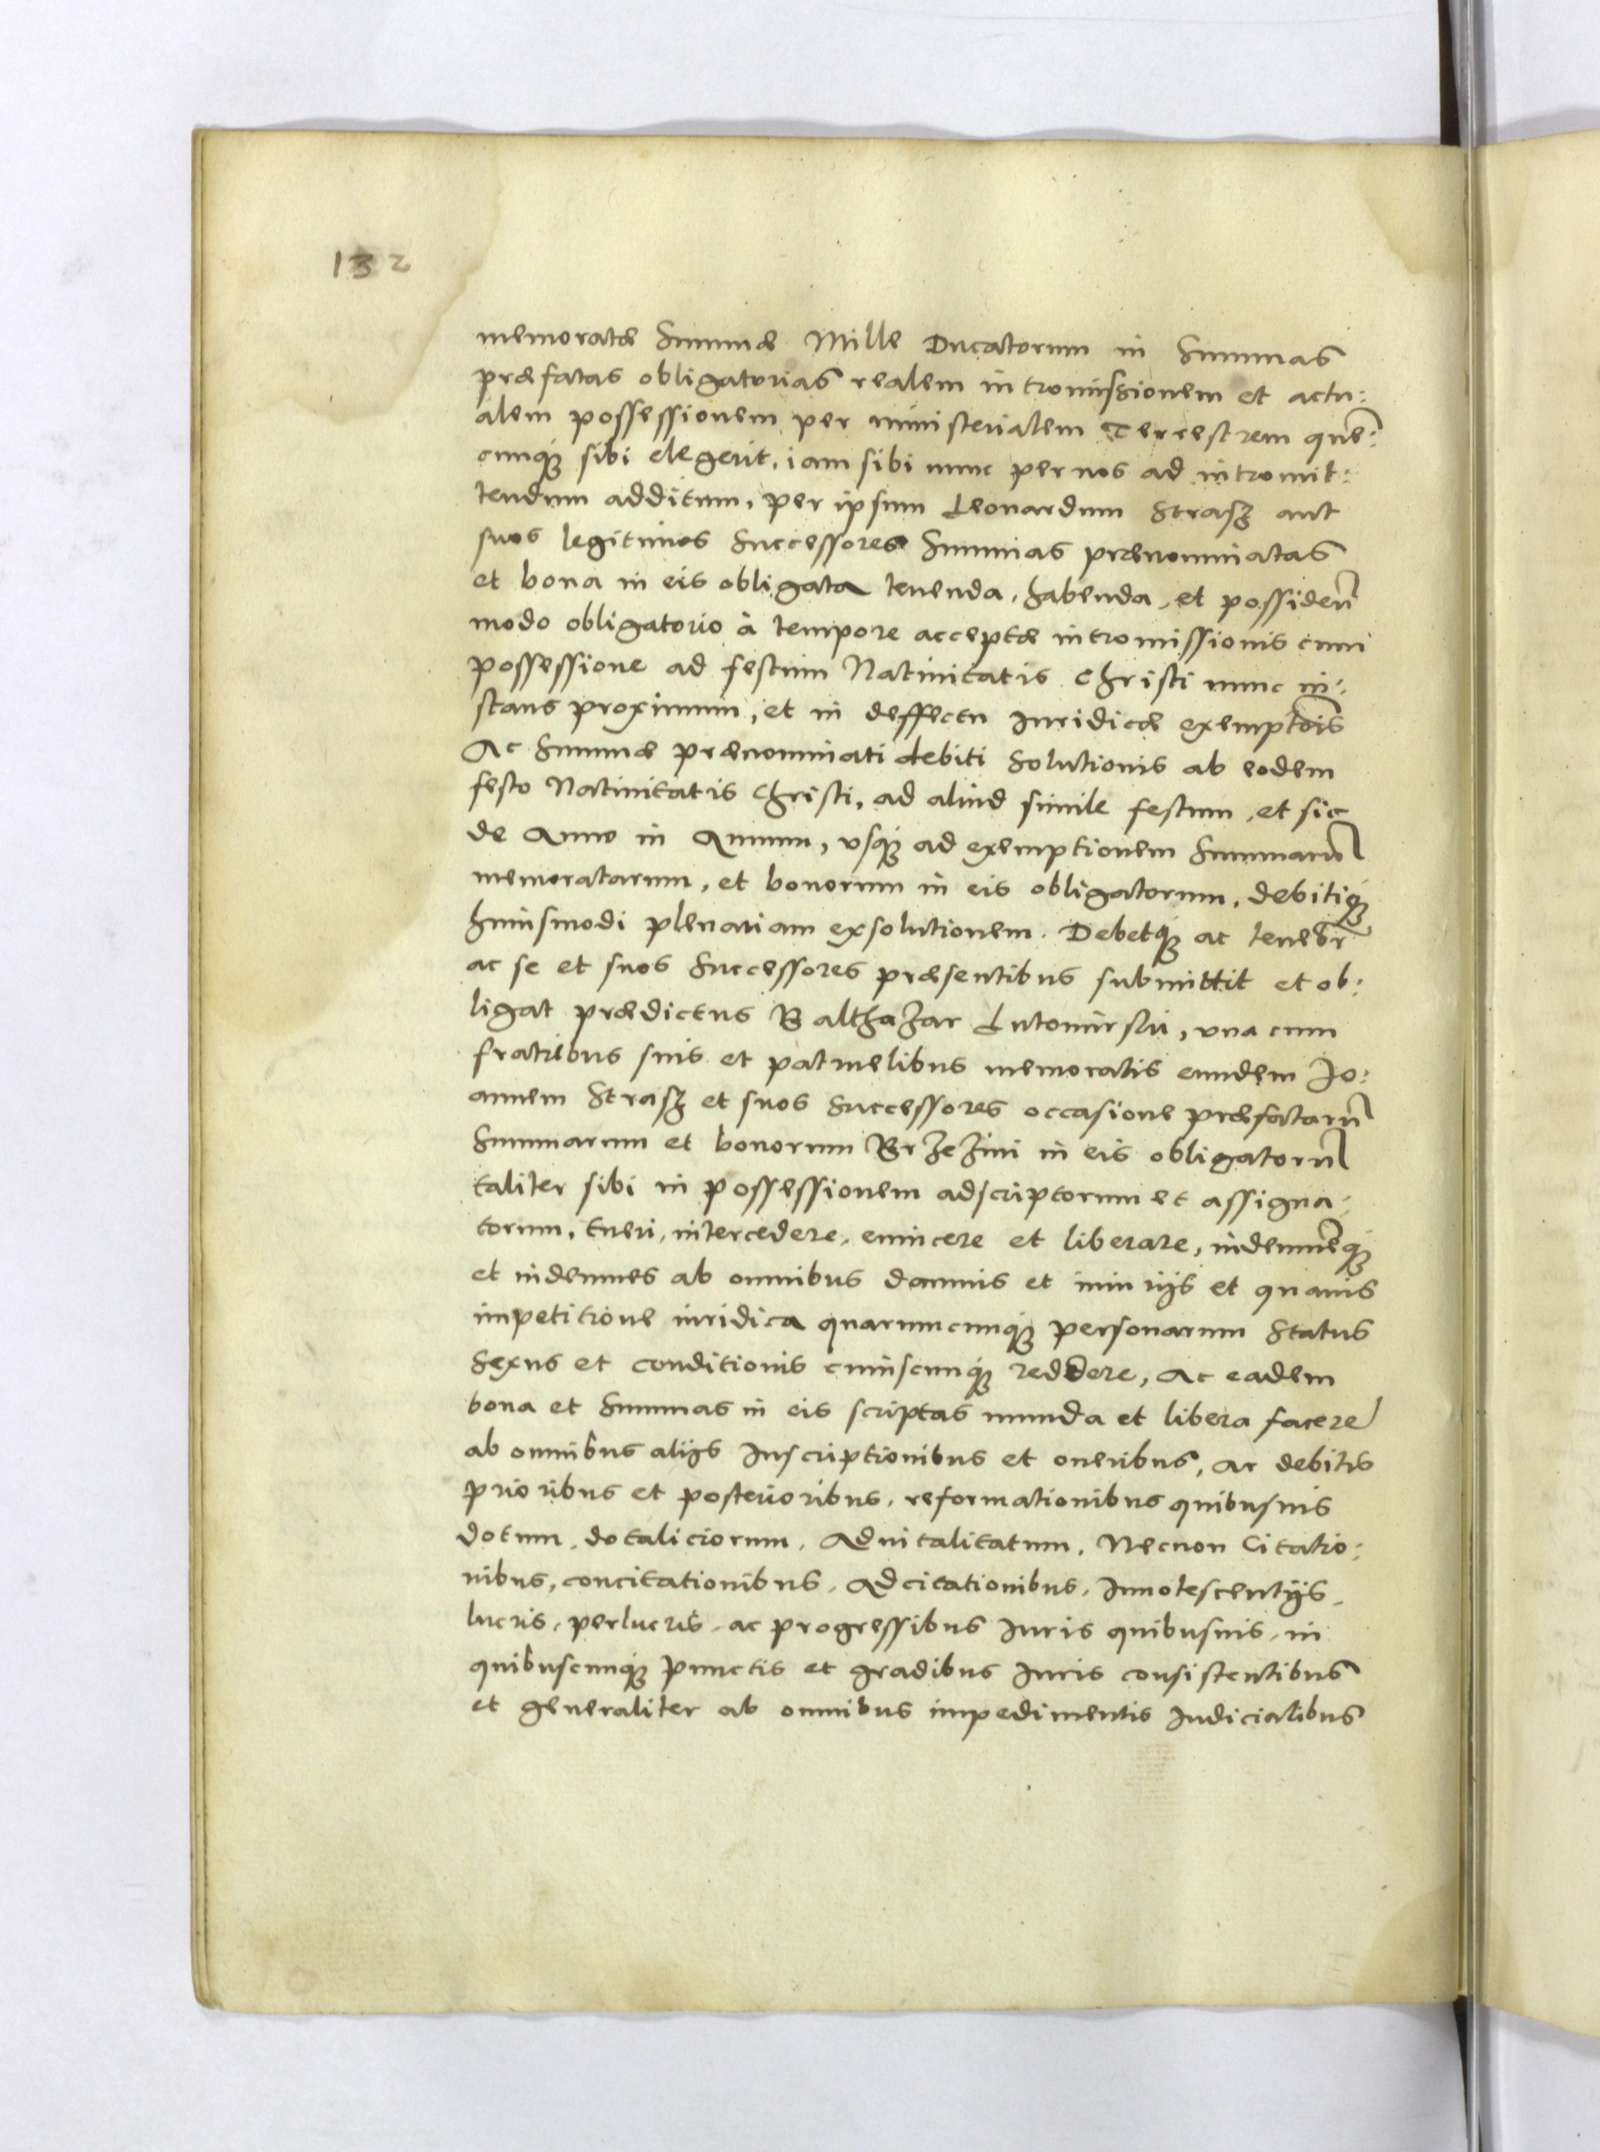 132
memoratæ Summæ Mille Ducatorum in Summas
præfatas obligatorias realem intromissionem et actu:
alem possessionem per ministerialem Terrestrem quē:
cunq sibi elegerit, iam sibi nunc per nos ad intromit:
tendum additum, per ipsum Leonardum Strasz aut
suos legitimos Successores Summas prænominatas
et bona in eis obligata tenenda, habenda, et possidenᷓ
modo obligatorio à tempore acceptæ intromissionis cum
possessione ad festum Natiuitatis Christi nunc in:
stans proximum, et in deffectu Iuridicæ exemptōis
Ac Summæ prænominati debiti Solutionis ab eodem
festo Natiuitatis Christi, ad aliud simile festum, et sic
de Anno in Annum, vsq ad exemptionem Summarū
memoratarum, et bonorum in eis obligatorum, debitiq
huiusmodi plenariam exsolutionem. Debetq ac tenebr
ac se et suos Successores præsentibus submittit et ob:
ligat prædictus Balthazar Lutomirski, vna cum
fratribus suis et patruelibus memoratis eundem Jo:
annem Strasz et suos Successores occasione præfatarū
Summarum et bonorum Brzezini in eis obligatorū
taliter sibi in possessionem adscriptorum et assigna:
torum, tueri, intercedere, euincere et liberare, indemnēq
et indemnes ab omnibus damnis et iniurijs et quauis
impetitione iuridica quarumcunq personarum Status
Sexus et conditionis cuiuscunq reddere, Ac eadem
bona et Summas in eis scriptas munda et libera facere
ab omnibus alijs Inscriptionibus et oneribus, Ac debitis
prioribus et posterioribus, reformationibus quibusuis
dotum, dotaliciorum, Aduitalitatum, Necnon Citatio:
nibus, concitationibus, Adcitationibus, Innotescentijs,
lucris, perlucris, ac progressibus Iuris quibusuis, in
quibuscunq punctis et gradibus Iuris consistentibus
et generaliter ab omnibus impedimentis Iudicialibus